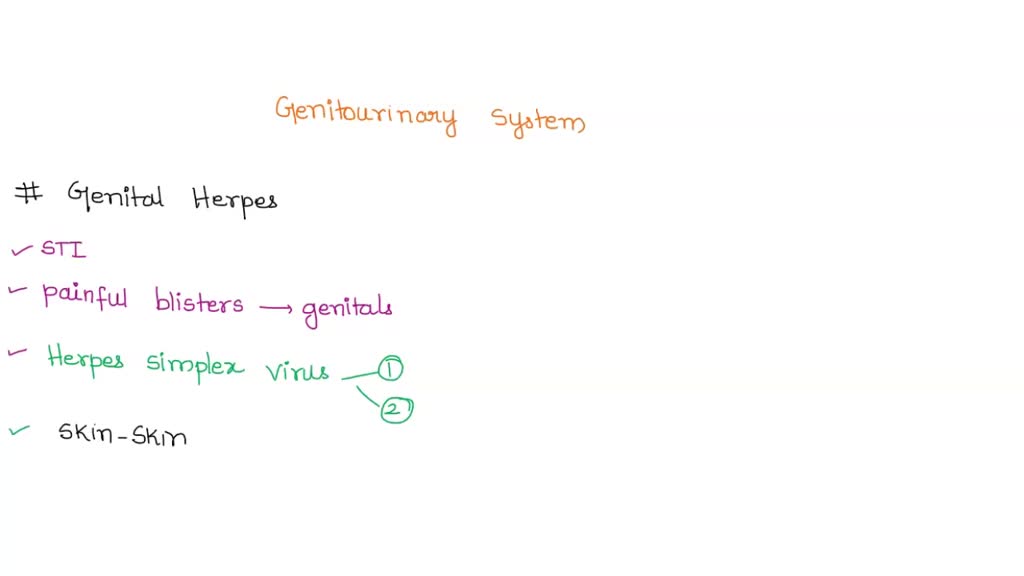 Genitourinary System
# Genital Herpes
✓ STI
✓ painful blisters → genitals
✓ Herpes simplex virus 1
2
✓ Skin-Skin